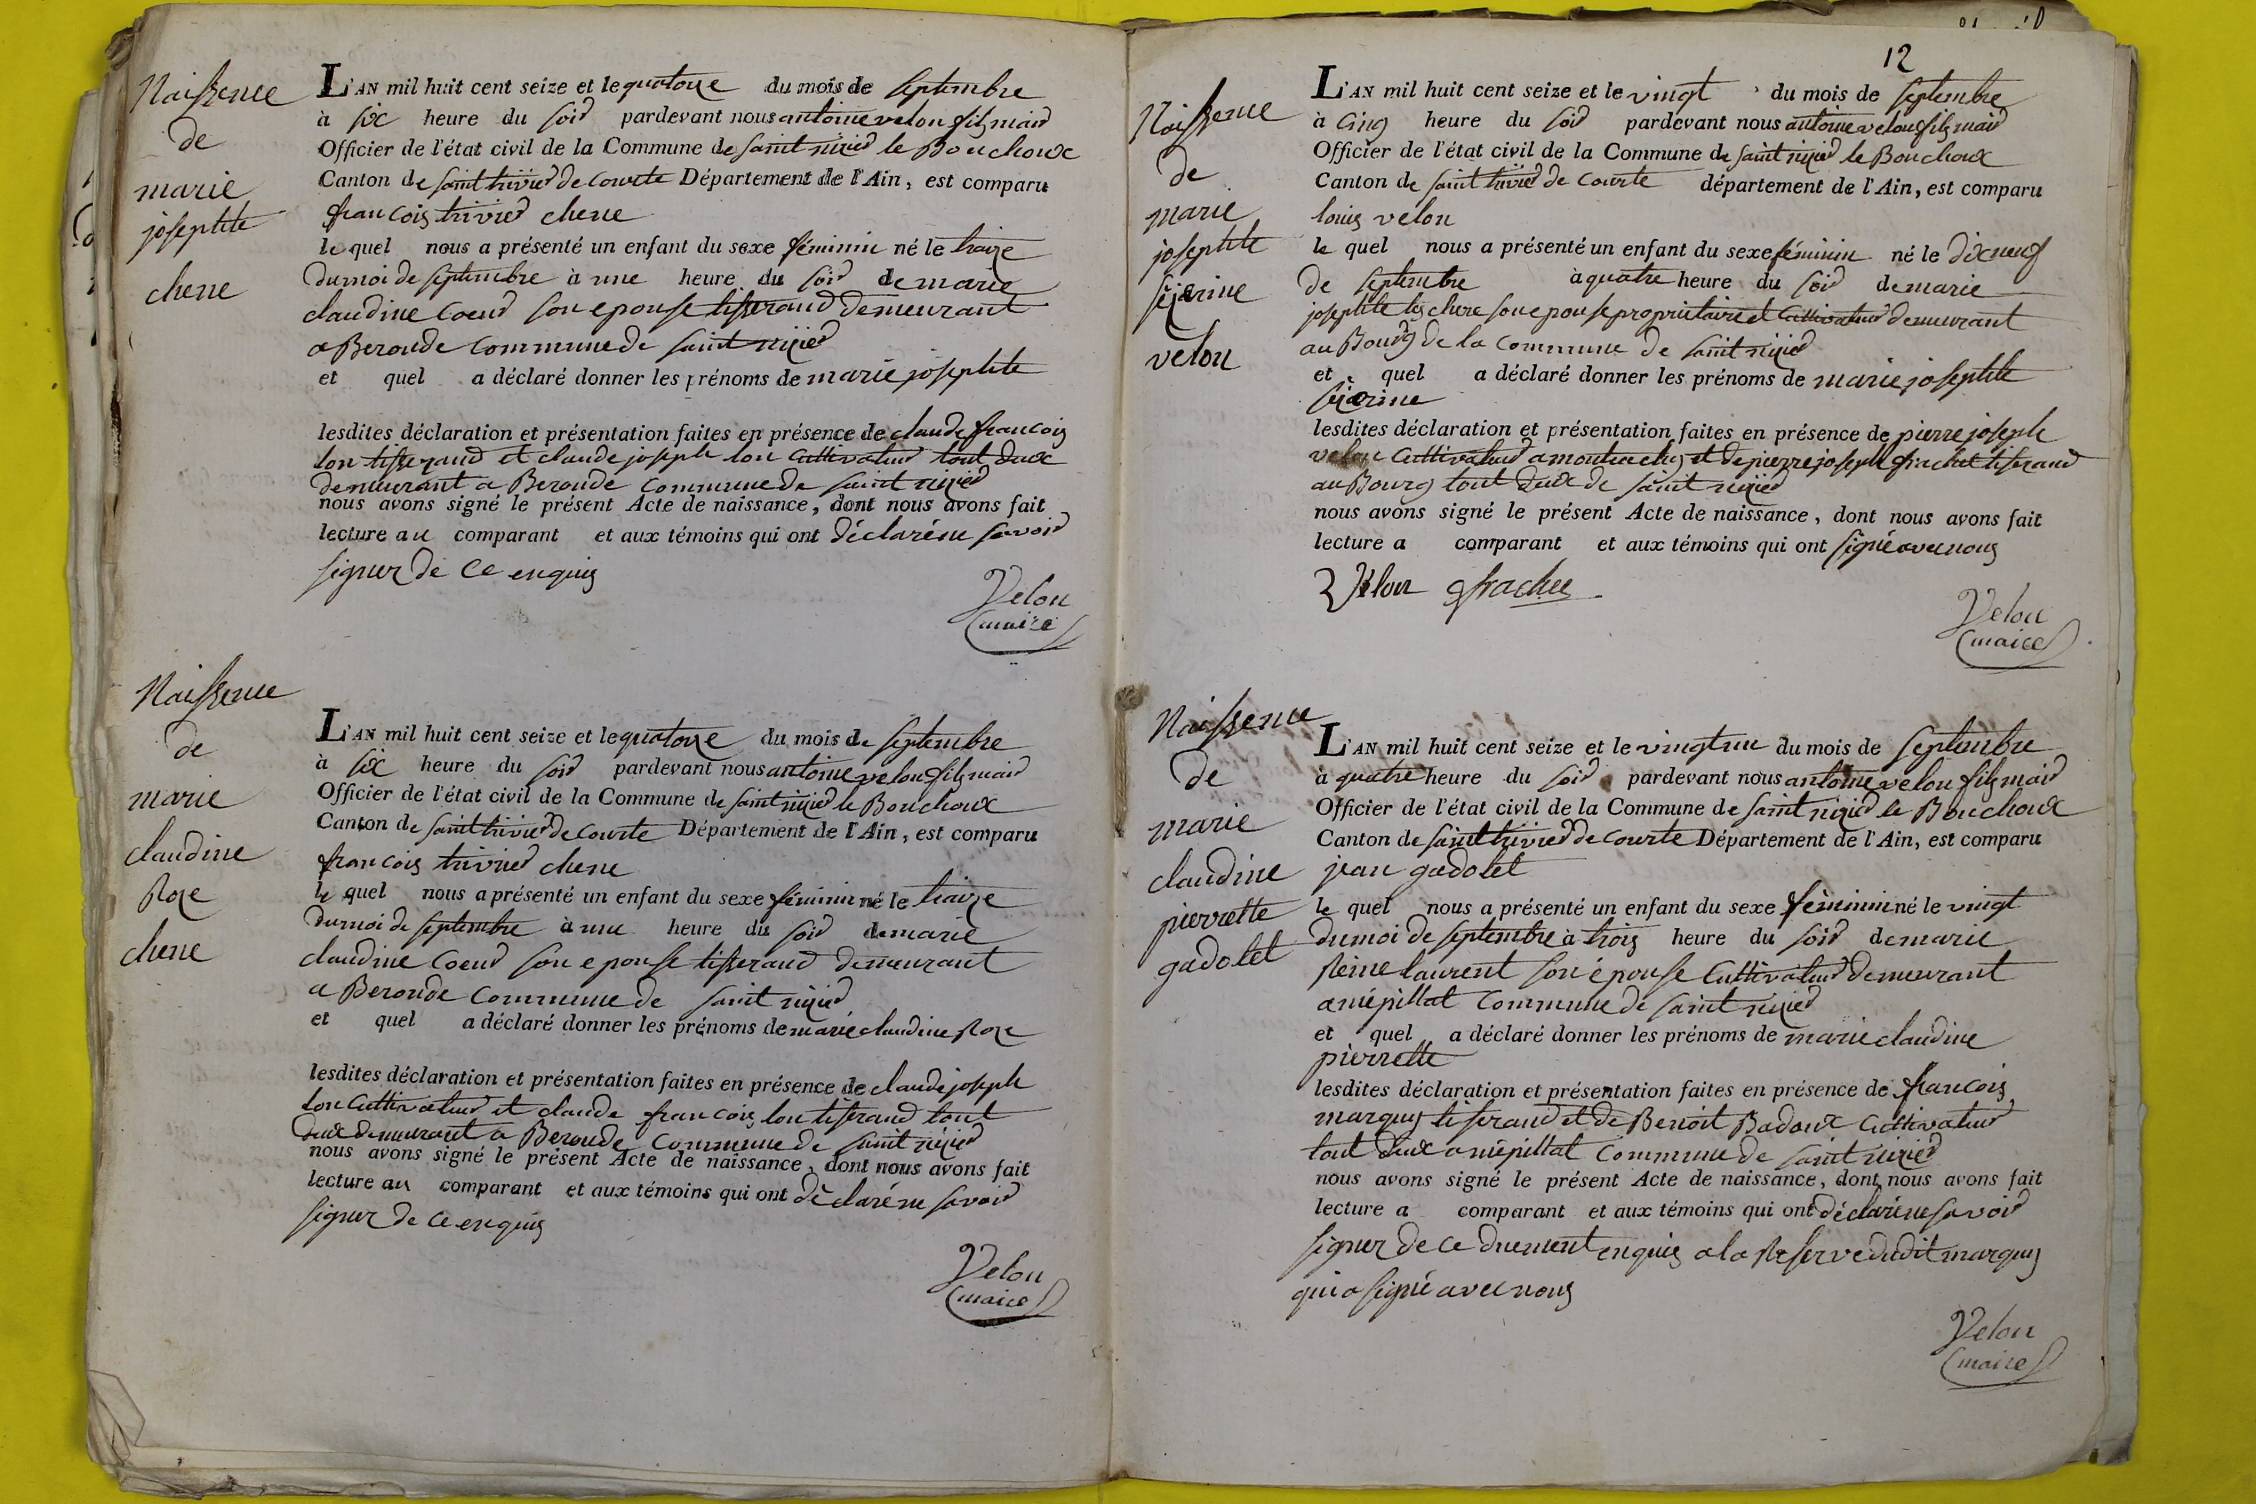 Naissence
de
marie
josephte
chene
L'AN mil huit cent seize et le quatorze du mois de septembre
à six heure du soir pardevant nous antoine velon fils maire
Officier de l'état civil de la Commune de saint nizier le Bouchoux
Canton de saint trivier de courte Département de l'Ain, est comparu
francois trivier chene
le quel nous a présenté un enfant du sexe féminin né le traize
du moi de septembre à une heure du soir de marie
claudine Coeur son epouse tisserand demeurant
a Beroude commune de saint nizier
et quel a déclaré donner les prénoms de marie josephte
lesdites déclaration et présentation faites en présence de claude francois
lon tisserand et claude joseph lon Cultivateur tout deux
demeurant a Beroude commune de saint nizier
nous avons signé le présent Acte de naissance, dont nous avons fait
lecture au comparant et aux témoins qui ont déclaré ne savoir
signer de ce enquis
Velon
maire
Naissence
de
marie
claudine
Roze
chene
L'AN mil huit cent seize et le quatorze du mois de septembre
à six heure du soir pardevant nous antoine velon fils maire
Officier de l'état civil de la Commune de saint nizier le Bouchoux
Canton de saint trivier de courte Département de l'Ain, est comparu
francois trivier chene
le quel nous a présenté un enfant du sexe féminin né le traize
du moi de septembre à une heure du soir de marie
claudine Coeur son epouse tisserand demeurant
a Beroude commune de saint nizier
et quel a déclaré donner les prénoms de marie claudine Roze
lesdites déclaration et présentation faites en présence de claude joseph
lon Cultivateur et claude francois lon tiserand tout
deux demeurant a Beroude commune de saint nizier
nous avons signé le présent Acte de naissance, dont nous avons fait
lecture au comparant et aux témoins qui ont déclaré ne savoir
signer de ce enquis
Velon
maire
12
Naissence
de
marie
josephte
séjerine
velon
L'AN mil huit cent seize et le vingt du mois de septembre
à cinq heure du soir pardevant nous antoine velon fils maire
Officier de l'état civil de la Commune de saint nizier le Bouchoux
Canton de saint trivier de courte département de l'Ain, est comparu
louis velon
le quel nous a présenté un enfant du sexe féminin né le dix neuf
de septembre à quatre heure du soir de marie
josephte chere son epouse propriétaire et Cultivateur demeurant
au Bourg de la commune de saint nizier
et quel a déclaré donner les prénoms de marie josephte
séjerine
lesdites déclaration et présentation faites en présence de pierre joseph
velon Cultivateur a et de pierre joseph frachet tiserand
au Bourg tout deux de saint nizier
nous avons signé le présent Acte de naissance, dont nous avons fait
lecture a comparant et aux témoins qui ont signé avec nous
Velon frachet
Velon
maire
Naissence
de
marie
claudine
pierrette
gadolet
L'AN mil huit cent seize et le vingt un du mois de septembre
à quatre heure du soir pardevant nous antoine velon fils maire
Officier de l'état civil de la Commune de saint nizier le Bouchoux
Canton de saint trivier de courte Département de l'Ain, est comparu
jean gadolet
le quel nous a présenté un enfant du sexe féminin né le vingt
du moi de septembre à trois heure du soir de marie
Reine laurent son épouse Cultivateur demeurant
a mépillat commune de saint nizier
et quel a déclaré donner les prénoms de marie claudine
pierrette
lesdites déclaration et présentation faites en présence de francois
marquis tiserand et de Benoit Badoux Cultivateur
tout deux a mépillat commune de saint nizier
nous avons signé le présent Acte de naissance, dont nous avons fait
lecture a comparant et aux témoins qui ont déclaré ne savoir
signer de ce duement enquis a la Reserve dudit marquis
qui a signé avec nous
Velon
maire